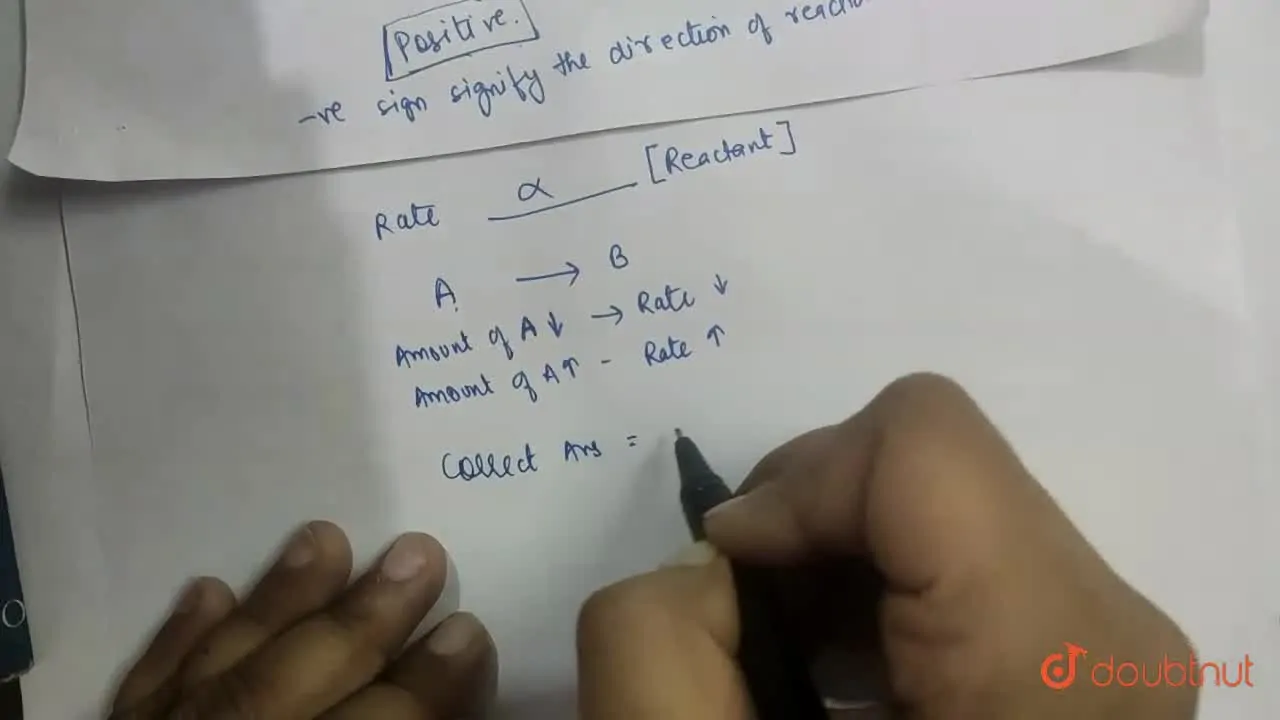 Positive.
-ve sign signify the direction of
Rate α [Reactant]
A → B
Amount of A ↓ → Rate ↓
Amount of A ↑ - Rate ↑
Correct Ans =
doubtnut